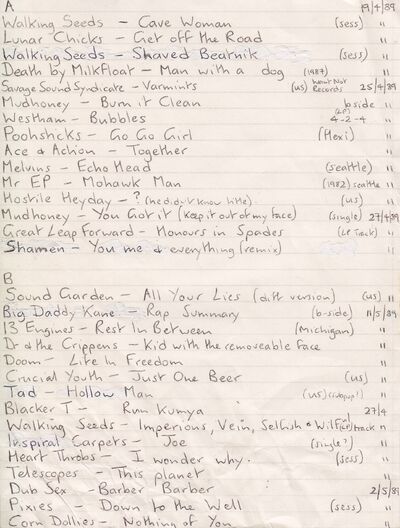 A 19/4/89
Walking Seeds - Cave Woman (sess) "
Lunar Chicks - Get off the Road "
Walking Seeds - Shaved Beatnik (sess) "
Death by Milkfloat - Man with a dog (1987) "
Savage Sound Syndicate - Varmints (US) Want Not Records 25/4/89
Mudhoney - Burn it Clean b side "
Westham - Bubbles (LP) 4-2-4 "
Poohsticks - Go Go Girl (flexi) "
Ace & Action - Together "
Melvins - Echo Head (seattle) "
Mr EP - Mohawk Man (1982) seattle "
Hostile Heyday - ? (he didn't know title) (US) "
Mudhoney - You Got it (keep it out of my face) (single) 27/4/89
Great Leap Forward - Honours in Spades (LP Track) "
Shamen - You me & everything (remix) "
B
Sound Garden - All Your Lies (diff version) (US) "
Big Daddy Kane - Rap Summary (b-side) 11/5/89
13 Engines - Rest In Between (Michigan) "
Dr & the Crippens - Kid with the removeable face "
Doom - Life In Freedom "
Crucial Youth - Just One Beer (US) "
Tad - Hollow Man (US) "
Blacker T - Run Kumya 27/4
Walking Seeds - Imperious, Vein, Selfish & Wilful track "
Inspiral Carpets - Joe (single?) "
Heart Throbs - I wonder why. (sess) "
Telescopes - This planet "
Dub Sex - Barber Barber 2/5/89
Pixies - Down to the Well (sess) "
Corn Dollies - Nothing of You "